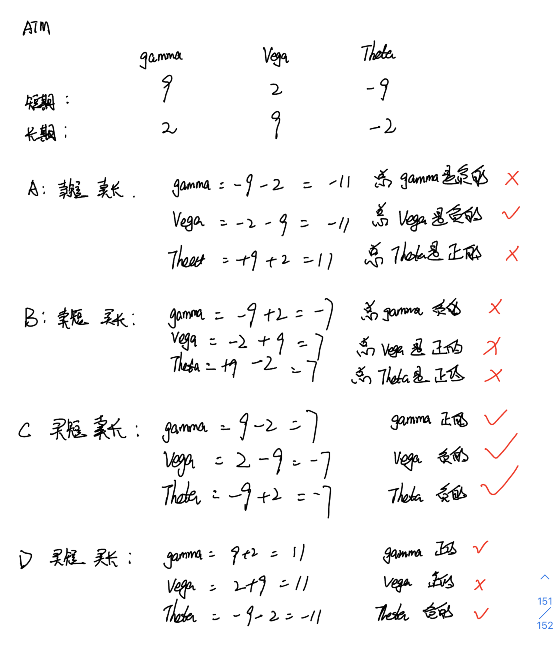 ATM
gamma Vega Theta
短期: 9 2 -9
长期: 2 9 -2
A: 卖短 卖长. gamma = -9 - 2 = -11 总 gamma是负的 ×
Vega = -2 - 9 = -11 总 Vega是负的 ✓
= +9 + 2 = 11 总 Theta是正的 ×
B: 卖短 买长: gamma = -9 + 2 = -7 总 gamma 负的 ×
Vega = -2 + 9 = 7 总 Vega 是 正的 ×
Theta = +9 - 2 = 7 总 Theta是 正的 ×
C 买短 卖长: gamma = 9 - 2 = 7 gamma 正的 ✓
Vega = 2 - 9 = -7 Vega 负的 ✓
Theta = -9 + 2 = -7 Theta 负的 ✓
D 买短 买长: gamma = 9 + 2 = 11 gamma 正的 ✓
Vega = 2 + 9 = 11 Vega 正的 ×
Theta = -9 - 2 = -11 Theta 负的 ✓
151
152